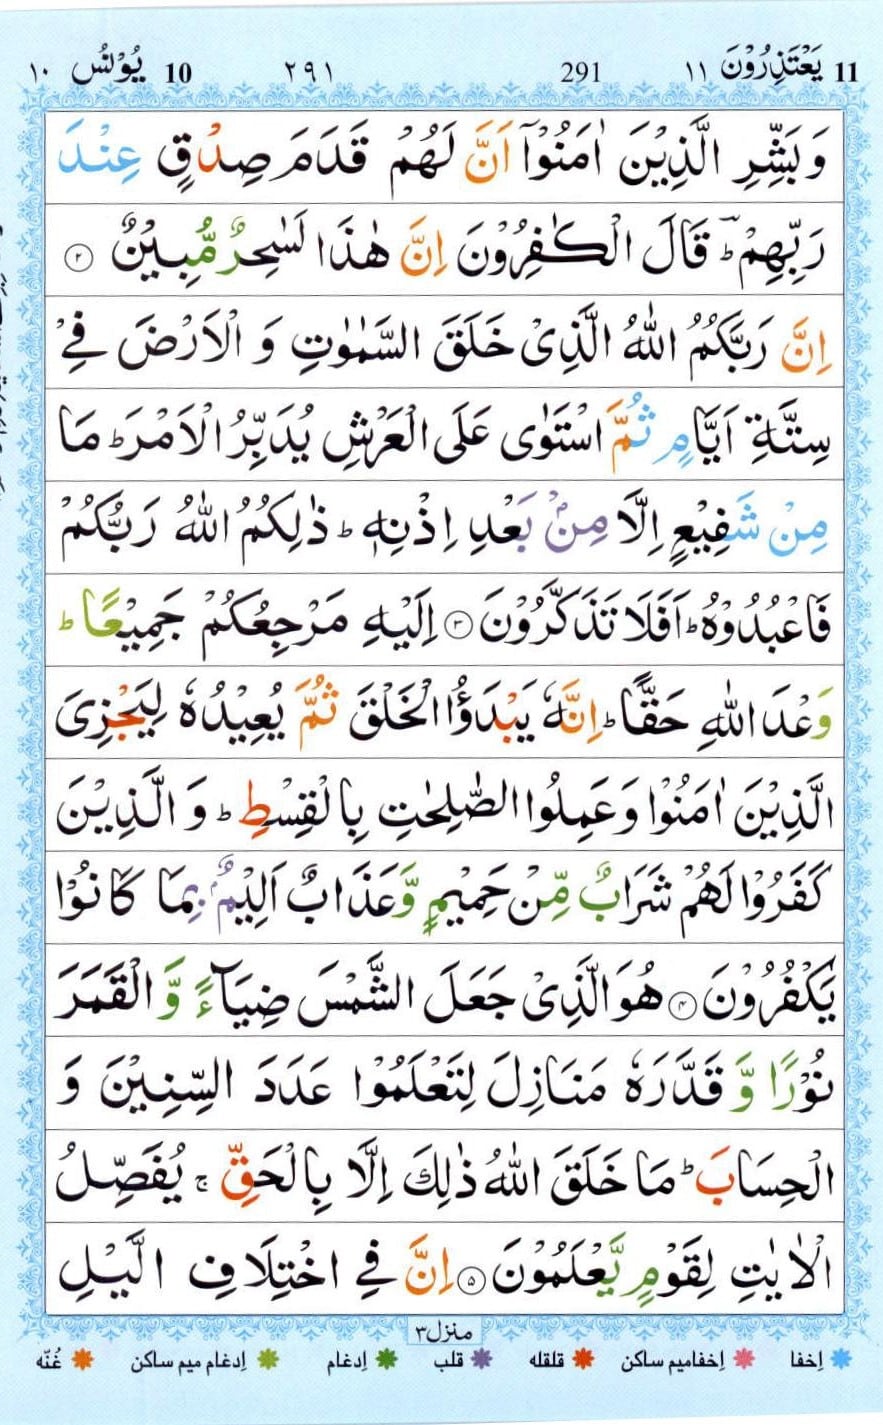 11 يَعْتَذِرُوْنَ ١١ 291 ٢٩١ 10 يُوْنُس ١٠
وَ بَشِّرِ الَّذِيْنَ اٰمَنُوْۤا اَنَّ لَهُمْ قَدَمَ صِدْقٍ عِنْدَ
رَبِّهِمْ ؕؔ قَالَ الْكٰفِرُوْنَ اِنَّ هٰذَا لَسٰحِرٌ مُّبِيْنٌ ۟۲
اِنَّ رَبَّكُمُ اللّٰهُ الَّذِیْ خَلَقَ السَّمٰوٰتِ وَ الْاَرْضَ فِیْ
سِتَّةِ اَيَّامٍ ثُمَّ اسْتَوٰی عَلَی الْعَرْشِ يُدَبِّرُ الْاَمْرَ ؕ مَا
مِنْ شَفِيْعٍ اِلَّا مِنْۢ بَعْدِ اِذْنِهٖ ؕ ذٰلِكُمُ اللّٰهُ رَبُّكُمْ
فَاعْبُدُوْهُ ؕ اَفَلَا تَذَكَّرُوْنَ ۟۳ اِلَيْهِ مَرْجِعُكُمْ جَمِيْعًا ؕ
وَعْدَ اللّٰهِ حَقًّا ؕ اِنَّهٗ يَبْدَؤُا الْخَلْقَ ثُمَّ يُعِيْدُهٗ لِيَجْزِیَ
الَّذِيْنَ اٰمَنُوْا وَ عَمِلُوا الصّٰلِحٰتِ بِالْقِسْطِ ؕ وَ الَّذِيْنَ
كَفَرُوْا لَهُمْ شَرَابٌ مِّنْ حَمِيْمٍ وَّ عَذَابٌ اَلِيْمٌۢ بِمَا كَانُوْا
يَكْفُرُوْنَ ۟۴ هُوَ الَّذِیْ جَعَلَ الشَّمْسَ ضِيَآءً وَّ الْقَمَرَ
نُوْرًا وَّ قَدَّرَهٗ مَنَازِلَ لِتَعْلَمُوْا عَدَدَ السِّنِيْنَ وَ
الْحِسَابَ ؕ مَا خَلَقَ اللّٰهُ ذٰلِكَ اِلَّا بِالْحَقِّ ۚ يُفَصِّلُ
الْاٰيٰتِ لِقَوْمٍ يَّعْلَمُوْنَ ۟۵ اِنَّ فِیْ اخْتِلَافِ الَّيْلِ
منزل۳
اِخفا اِخفامیم ساکن قلقله قلب اِدغام اِدغام میم ساکن غُنّه